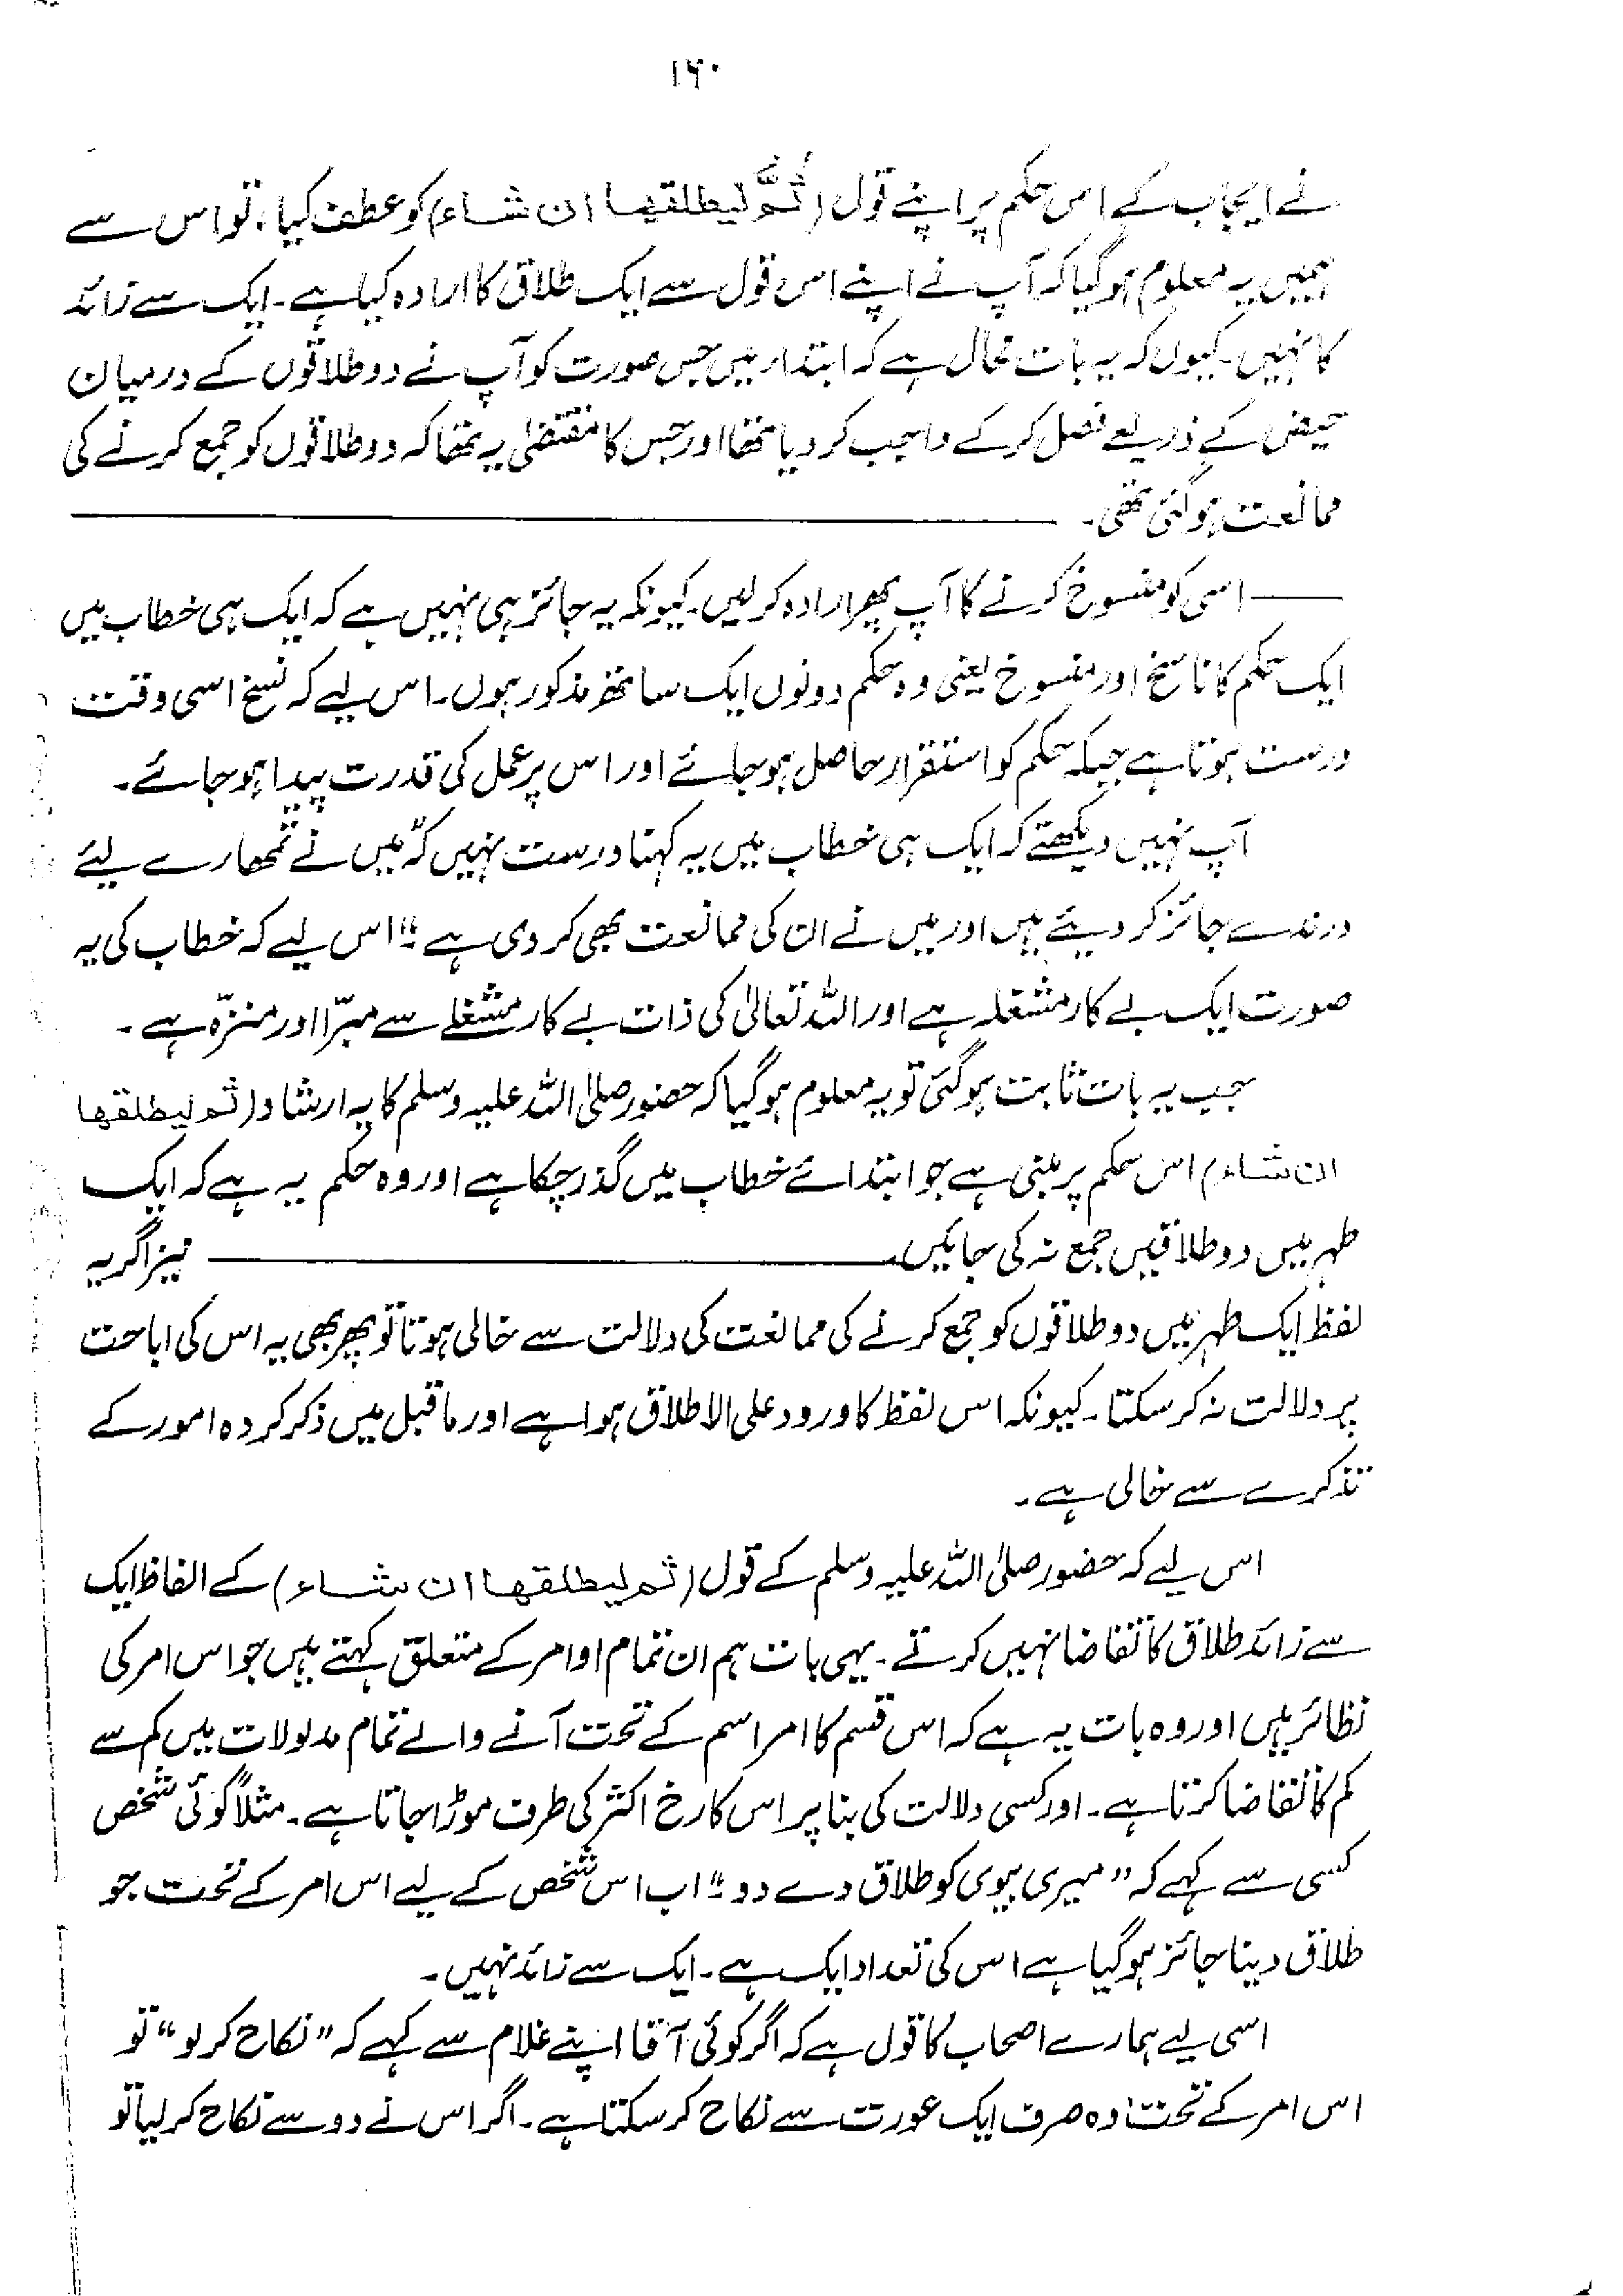 ۱۶۰
نے ایجاب کے اس حکم پر اپنے قول (ثُمَّ لیطلقھا ان شاء) کو عطف کیا، تو اس سے
ہمیں یہ معلوم ہوگیا کہ آپ نے اپنے اس قول سے ایک طلاق کا ارادہ کیا ہے۔ ایک سے زائد
کا نہیں۔ کیوں کہ یہ بات محال ہے کہ ابتدار میں جس صورت کو آپ نے دو طلاقوں کے درمیان
حیض کے ذریعے فصل کرکے واجب کر دیا تھا اور جس کا مقتضیٰ یہ تھا کہ دو طلاقوں کو جمع کرنے کی
ممانعت ہوگئی تھی۔
اسی کو منسوخ کرنے کا آپ پھر ارادہ کرلیں۔ کیونکہ یہ جائز ہی نہیں ہے کہ ایک ہی خطاب میں
ایک حکم کا ناسخ اور منسوخ یعنی وہ حکم دونوں ایک ساتھ مذکور ہوں۔ اس لیے کہ نسخ اسی وقت
درست ہوتا ہے جبکہ حکم کو استقرار حاصل ہوجائے اور اس پر عمل کی قدرت پیدا ہوجائے۔
آپ نہیں دیکھتے کہ ایک ہی خطاب میں یہ کہنا درست نہیں کہ ”میں نے تمھارے لیئے
درندے جائز کر دیئے ہیں اور میں نے ان کی ممانعت بھی کردی ہے۔“ اس لیے کہ خطاب کی یہ
صورت ایک بے کار مشغلہ ہے اور اللہ تعالیٰ کی ذات بے کار مشغلے سے مبرّا اور منزّہ ہے۔
جب یہ بات ثابت ہوگئی تو یہ معلوم ہوگیا کہ حضور صلی اللہ علیہ وسلم کا یہ ارشاد (ثم لیطلقھا
ان شاء) اس حکم پر مبنی ہے جو ابتدائے خطاب میں گذر چکا ہے اور وہ حکم یہ ہے کہ ایک
طہر میں دو طلاقیں جمع نہ کی جائیں۔ نیز اگر یہ
لفظ ایک طہر میں دو طلاقوں کو جمع کرنے کی ممانعت کی دلالت سے خالی ہوتا تو پھر بھی یہ اس کی اباحت
پر دلالت نہ کرسکتا۔ کیونکہ اس لفظ کا ورود علی الاطلاق ہوا ہے اور ماقبل میں ذکر کردہ امور کے
تذکرے سے خالی ہے۔
اس لیے کہ حضور صلی اللہ علیہ وسلم کے قول (ثم لیطلقھا ان شاء) کے الفاظ ایک
سے زائد طلاق کا تقاضا نہیں کرتے۔ یہی بات ہم ان تمام اوامر کے متعلق کہتے ہیں جو اس امر کی
نظائر ہیں اور وہ بات یہ ہے کہ اس قسم کا امر اسم کے تحت آنے والے تمام مدلولات میں کم سے
کم کا تقاضا کرتا ہے۔ اور کسی دلالت کی بنا پر اس کا رخ اکثر کی طرف موڑا جاتا ہے۔ مثلاً کوئی شخص
کسی سے کہے کہ ”میری بیوی کو طلاق دے دو۔“ اب اس شخص کے لیے اس امر کے تحت جو
طلاق دینا جائز ہوگیا ہے اس کی تعداد ایک ہے۔ ایک سے زائد نہیں۔
اسی لیے ہمارے اصحاب کا قول ہے کہ اگر کوئی آقا اپنے غلام سے کہے کہ ”نکاح کرلو“ تو
اس امر کے تحت وہ صرف ایک عورت سے نکاح کرسکتا ہے۔ اگر اس نے دو سے نکاح کرلیا تو